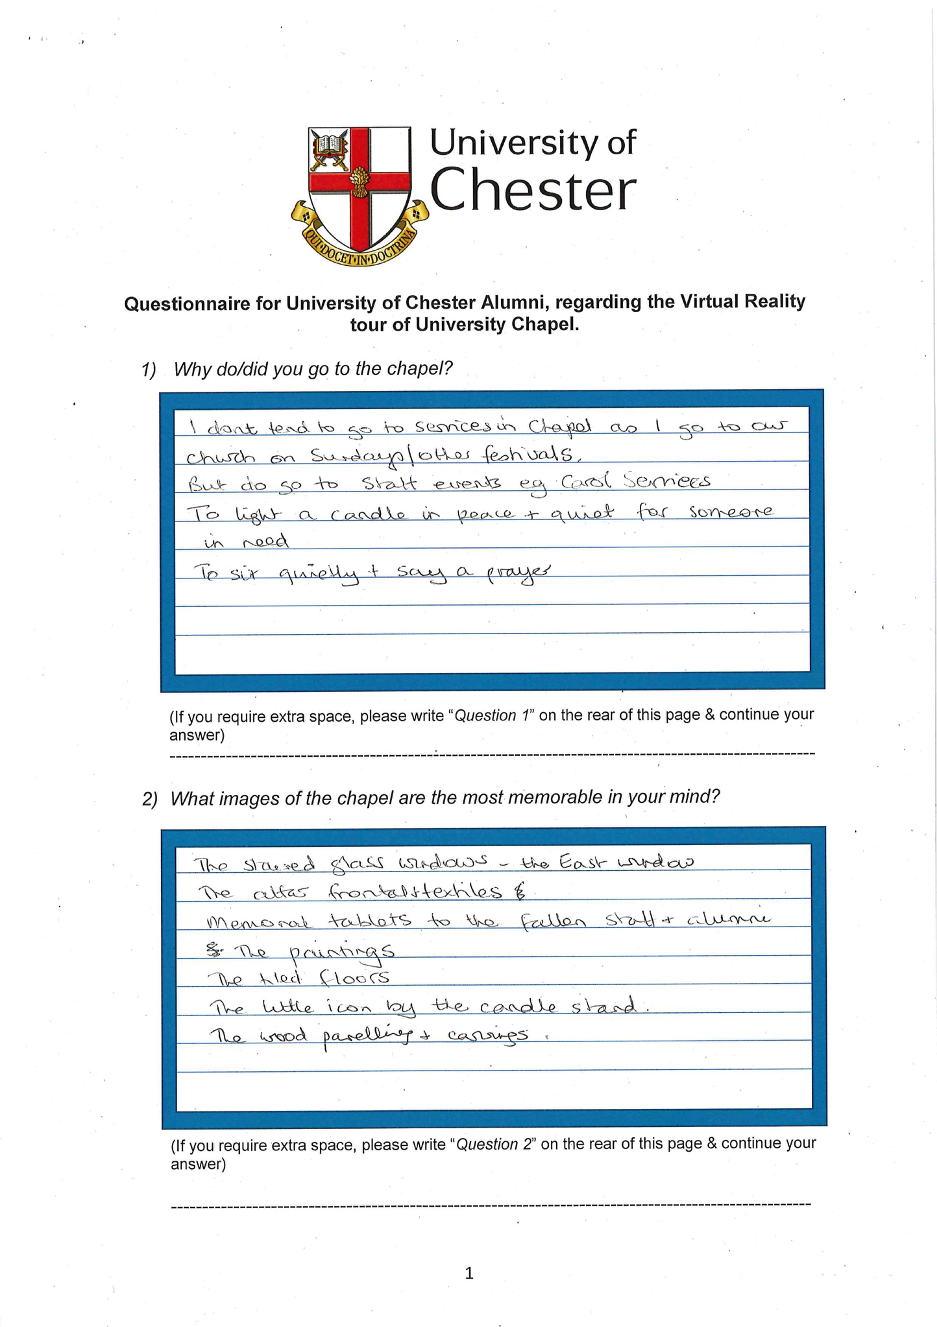 University of
Chester
QUI·DOCET·IN·DOCTRINA
Questionnaire for University of Chester Alumni, regarding the Virtual Reality
tour of University Chapel.
1) Why do/did you go to the chapel?
I dont tend to go to services in Chapel as I go to our
church on Sundays/other festivals.
But do go to staff events eg Carol Services
To light a candle in peace + quiet for someone
in need
To sit quietly + say a prayer
(If you require extra space, please write “Question 1” on the rear of this page & continue your
answer)
2) What images of the chapel are the most memorable in your mind?
The stained glass windows - the East window
The altar frontals+textiles &
Memorial tablets to the fallen staff + alumni
& The paintings
The tiled floors
The little icon by the candle stand.
The wood panelling + carvings.
(If you require extra space, please write “Question 2” on the rear of this page & continue your
answer)
1